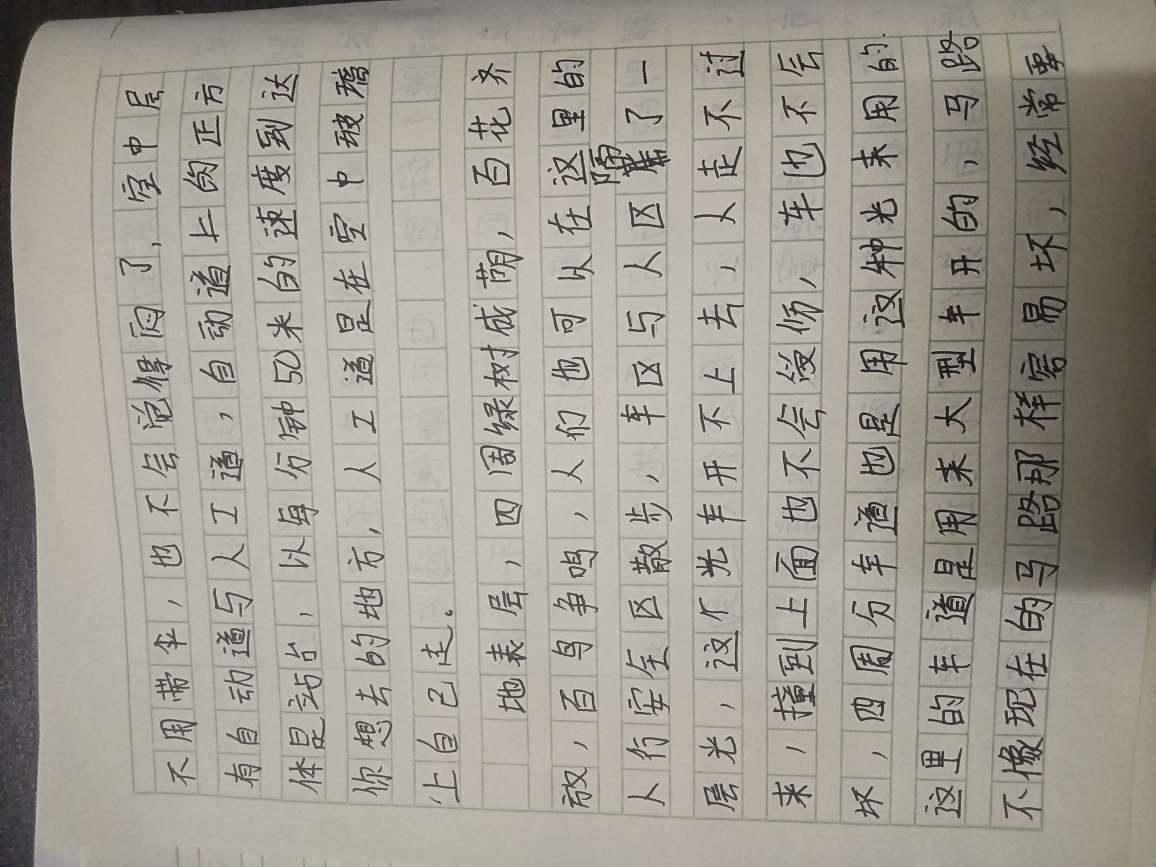 不用带伞，也不会觉得闷了，空中层
有自动道与人工道，自动道上的正方
体是站台，以每分钟50米的速度到达
你想去的地方，人工道是在空中玻璃
上自己走。
地表层，四周绿树成荫，百花齐
放，百鸟争鸣，人们也可以在这里的
人行安全区散步，车区与人区隔了一
层光，这个光车开不上去，人走不过
来，撞到上面也不会受伤，车也不会
坏，四周分车道也是用这种光来用的.
这里的车道是用来大型车开的，马路
不像现在的马路那样容易坏，经常要